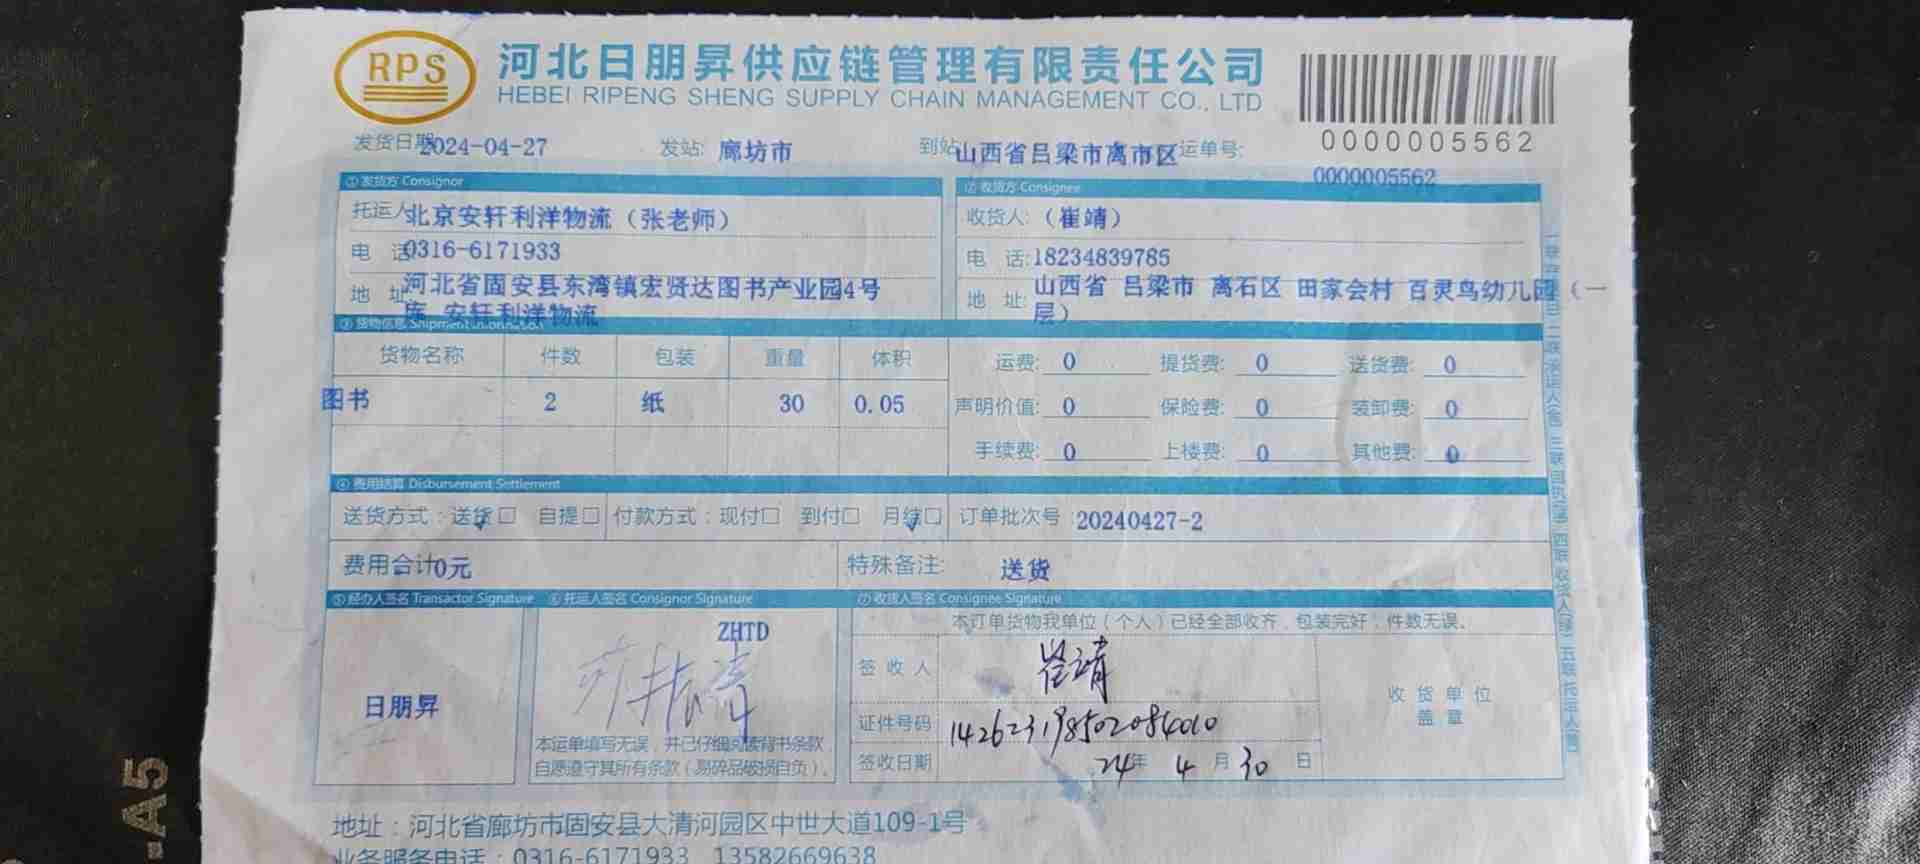 RPS
河北日朋昇供应链管理有限责任公司
HEBEI RIPENG SHENG SUPPLY CHAIN MANAGEMENT CO., LTD
0000005562
发货日期 2024-04-27 发站: 廊坊市 到站 山西省吕梁市离市区 运单号: 0000005562
① 发货方 Consignor ② 收货方 Consignee
托运人 北京安轩利洋物流（张老师） 收货人:（崔靖）
电 话 0316-6171933 电 话: 18234839785
地 址 河北省固安县东湾镇宏贤达图书产业园4号 地 址: 山西省 吕梁市 离石区 田家会村 百灵鸟幼儿园（一
库 安轩利洋物流 层）
③ 货物信息 Shipment Information
货物名称 件数 包装 重量 体积 运费: 0 提货费: 0 送货费: 0
图书 2 纸 30 0.05 声明价值: 0 保险费: 0 装卸费: 0
手续费: 0 上楼费: 0 其他费: 0
④ 费用结算 Disbursement Settlement
送货方式: 送货□ 自提□ 付款方式: 现付□ 到付□ 月结□ 订单批次号 20240427-2
费用合计0元 特殊备注: 送货
⑤ 经办人签名 Transactor Signature ⑥ 托运人签名 Consignor Signature ⑦ 收货人签名 Consignee Signature
本订单货物我单位（个人）已经全部收齐，包装完好，件数无误。
ZHTD
签收人 崔靖
日朋昇
收货单位
盖章
证件号码 142623198502084010
本运单填写无误，并已仔细阅读背书条款，
自愿遵守其所有条款（易碎品破损自负）。
签收日期 24年 4月 30日
地址：河北省廊坊市固安县大清河园区中世大道109-1号
业务服务电话：0316-6171933 13582669638
.A5